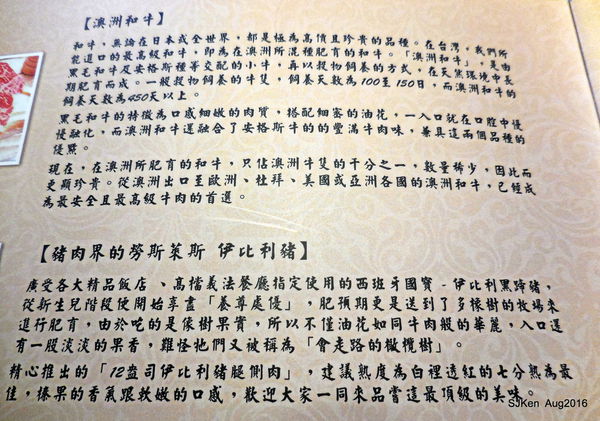 【澳洲和牛】
和牛，無論在日本或全世界，都是極為高價且珍貴的品種。在台灣，我們所
能進口的最高級和牛，即為在澳洲所混種肥育的和牛。「澳洲和牛」，是由
黑毛和牛及安格斯種等交配的小牛，再以穀物飼養的方式，在天然環境中長
期肥育而成。一般穀物飼養的牛隻，飼養天數為100至150日，而澳洲和牛的
飼養天數為450天以上。
黑毛和牛的特徵為口感細嫩的肉質，搭配細密的油花，一入口就在口腔中慢
慢融化，而澳洲和牛還融合了安格斯牛的的豐滿牛肉味，兼具這兩個品種的
優點。
現在，在澳洲所肥育的和牛，只佔澳洲牛隻的千分之一，數量稀少，因此而
更顯珍貴。從澳洲出口至歐洲、杜拜、美國或亞洲各國的澳洲和牛，已經成
為最安全且最高級牛肉的首選。
【豬肉界的勞斯萊斯 伊比利豬】
廣受各大精品飯店、高檔義法餐廳指定使用的西班牙國寶-伊比利黑蹄豬，
從新生兒階段便開始享盡「養尊處優」，肥預期更是送到了多橡樹的牧場來
進行肥育，由於吃的是橡樹果實，所以不僅油花如同牛肉般的華麗，入口還
有一股淡淡的果香，難怪牠們又被稱為「會走路的橄欖樹」。
精心推出的「12盎司伊比利豬腿側肉」，建議熟度為白裡透紅的七分熟為最
佳，榛果的香氣跟軟嫩的口感，歡迎大家一同來品嘗這最頂級的美味。
SJKen Aug2016